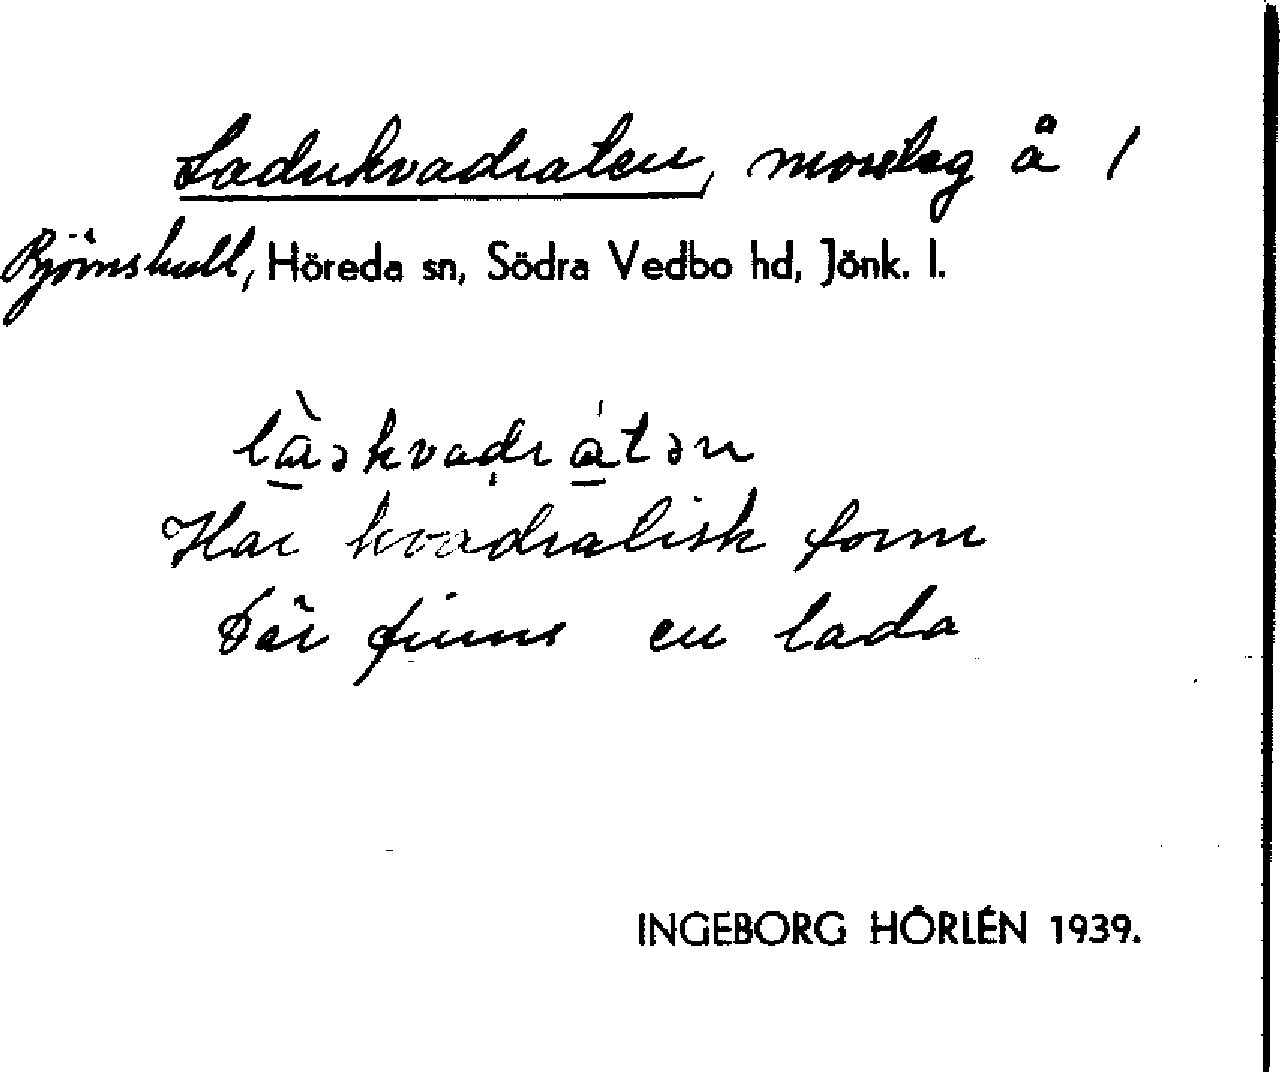 Ladukvadraten, mosslag å 1
Björnshult, Höreda sn, Södra Vedbo hd, Jönk. l.
làəkvadrátən
Har kvadratisk form
Där finns en lada
INGEBORG HÖRLÉN 1939.